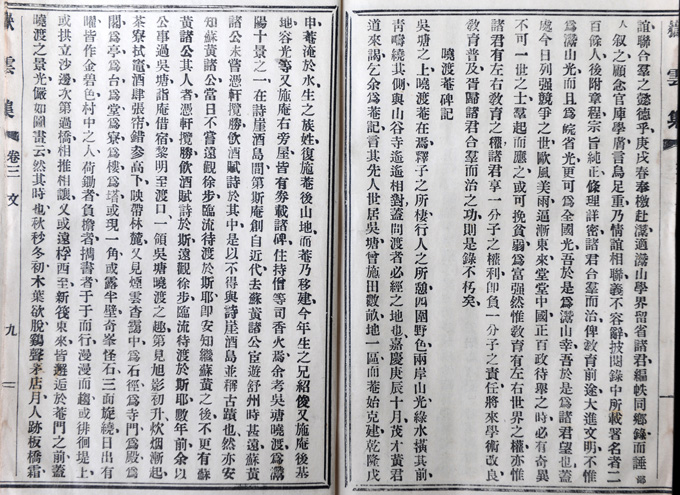 嶽雲集
誼聯合羣之懿德乎庚戌春奉檄赴灊適灊山學界留省諸君編帙同鄉錄而諈鄙
人叙之顧念官庫學膚言烏足重乃情誼相聯義不容辭披閱錄中所載署名者二
百餘人後附章程宗旨純正條理詳密諸君合羣而治俾教育前途大進文明不惟
為灊山光而且為皖省光更可為全國光吾於是為灊山幸吾於是為諸君望也蓋
處今日列強競爭之世歐風美雨逼漸東來堂堂中國正百政待舉之時必有奇異
不可一世之士羣起而應之或可挽貧弱為富强然惟教育有左右世界之權亦惟
諸君有左右教育之權諸君享一分子之權利卽負一分子之責任將來學術改良
教育普及胥歸諸君合羣而治之功則是錄不朽矣
曉渡菴碑記
吳塘之上曉渡菴在焉釋子之所棲行人之所憩四圍野色兩岸山光綠水橫其前
青疇繞其側與山谷寺遙遙相對蓋問渡者必經之地也嘉慶庚辰十月茂才黃君
道來謁乞余為菴記言其先人世居吳塘曾施田數畝地一區而菴始克建乾隆戊
申菴淹於水生之族姓復施菴後山地而菴乃移建今年生之兄紹俊又施菴後基
地容光等又施菴右旁屋皆有劵載諸碑住持僧等司香火焉余考吳塘曉渡為灊
陽十景之一在詩崖酒島間第斯菴創自近代去蘇黃諸公宦遊舒州時甚遠蘇黃
諸公未嘗憑軒攬勝飲酒賦詩於其中是以不得與詩崖酒島並稱古蹟也然亦安
知蘇黃諸公當日不嘗遠觀徐步臨流待渡於斯耶卽安知繼蘇黃之後不更有蘇
黃諸公其人者憑軒攬勝飲酒賦詩於斯遠觀徐步臨流待渡於斯耶數年前余以
公事過吳塘詣菴借宿黎明至渡口一領吳塘曉渡之趣第見旭影初升炊烟漸起
茶寮拭竈酒肆張帘錯參高下映帶林麓又見煙雲杳靄中為石徑為寺門為殿為
閣為亭為台為堂為寮為樓為塔或現一角或露半壁奇峯怪石三面旋繞日出有
曜皆作金碧色村中之人荷鋤者負檐者攜書者于于而行漫漫而趨或徘徊堤上
或拱立沙邊次第過橋相推相讓又或遠桴西至新筏東來皆邂逅於菴門之前蓋
曉渡之景光儼如圖畫云然其時也秋杪冬初木葉欲脫鷄聲茅店月人跡板橋霜
嶽雲集 卷三 文 九